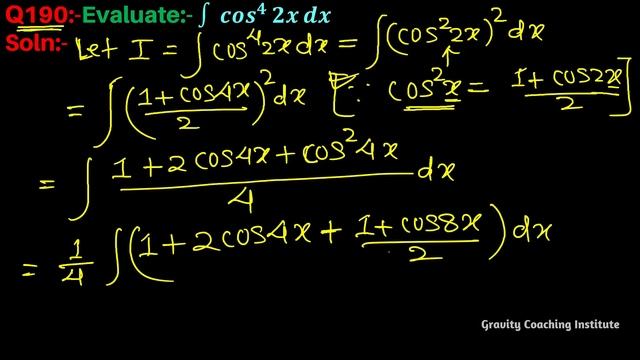 Q190:-Evaluate:- ∫ cos⁴ 2x dx
Soln:- Let I = ∫cos⁴2x dx = ∫(cos²2x)² dx
= ∫(1+cos4x/2)² dx [∵ cos²x = 1+cos2x/2]
= ∫ 1+2cos4x+cos²4x/4 dx
= 1/4 ∫(1+2cos4x + 1+cos8x/2) dx
Gravity Coaching Institute